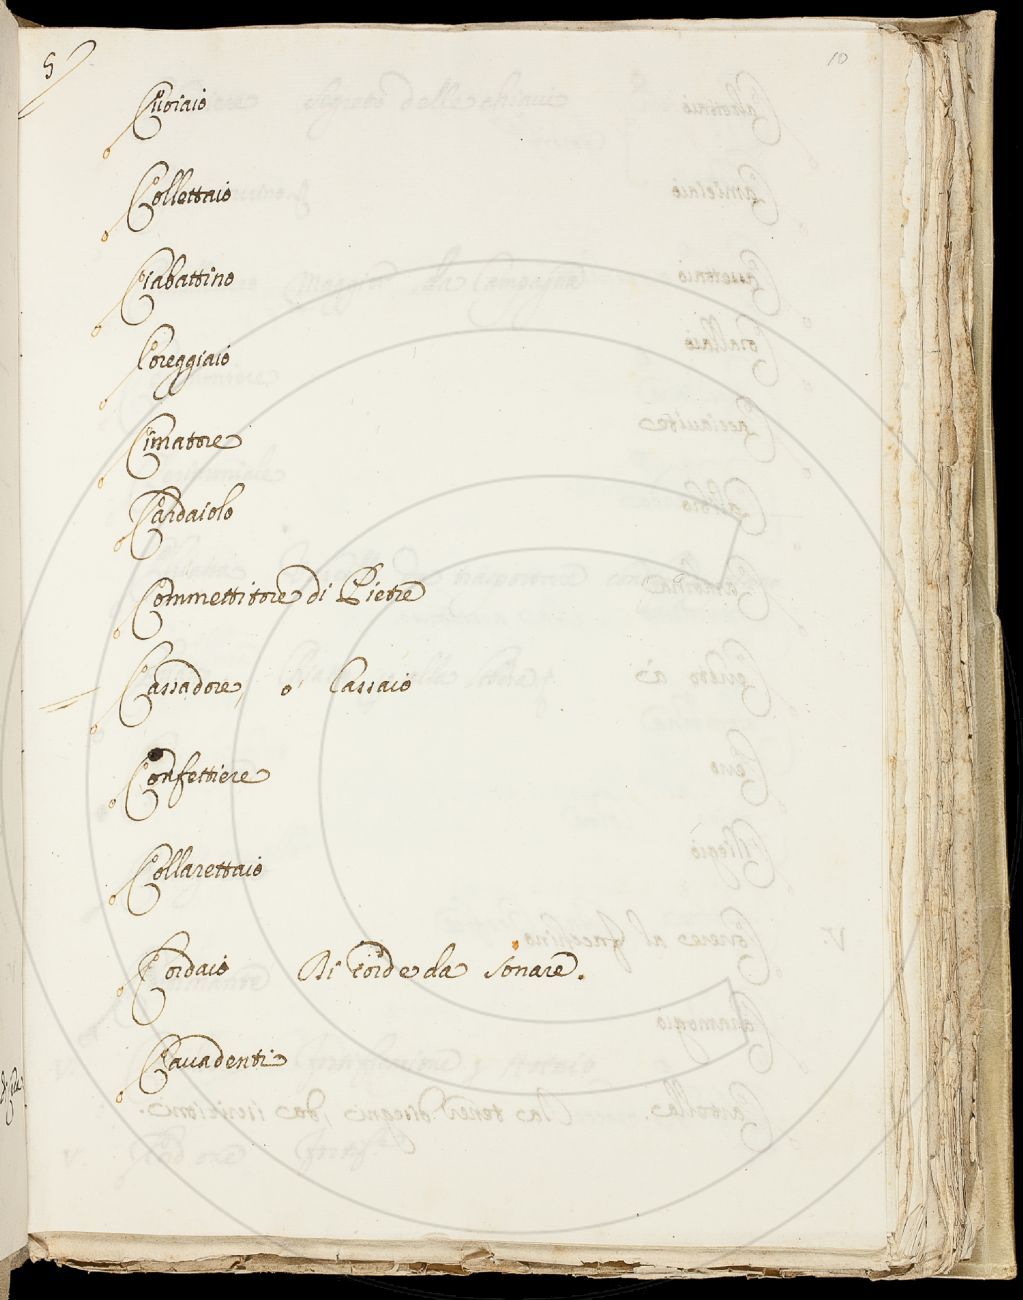 5
10
Cuoiaio
Collettaio
Ciabattino
Coreggiaio
Cimatore
Cardaiolo
Commettitore di Pietre
Cassadore, o' Cassaio
Confettiere
Collarettaio
Cordaio Di corde da sonare.
Cavadenti